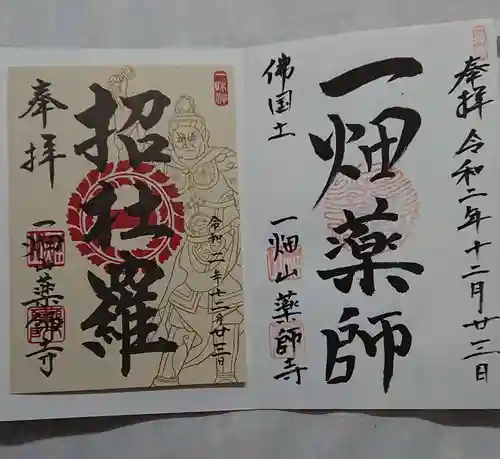 奉拝 令和二年十二月廿三日
一畑薬師
佛国土
一畑山薬師寺
奉拝
招杜羅
一畑山薬師寺
令和二年十二月廿三日